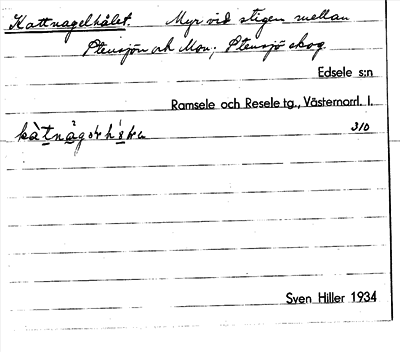 Kattnagelhålet. Myr vid stigen mellan
Stensjön och Mon; Stensjö skog.
Edsele s:n
Ramsele och Resele tg., Västernorrl. l.
310
Sven Hiller 1934